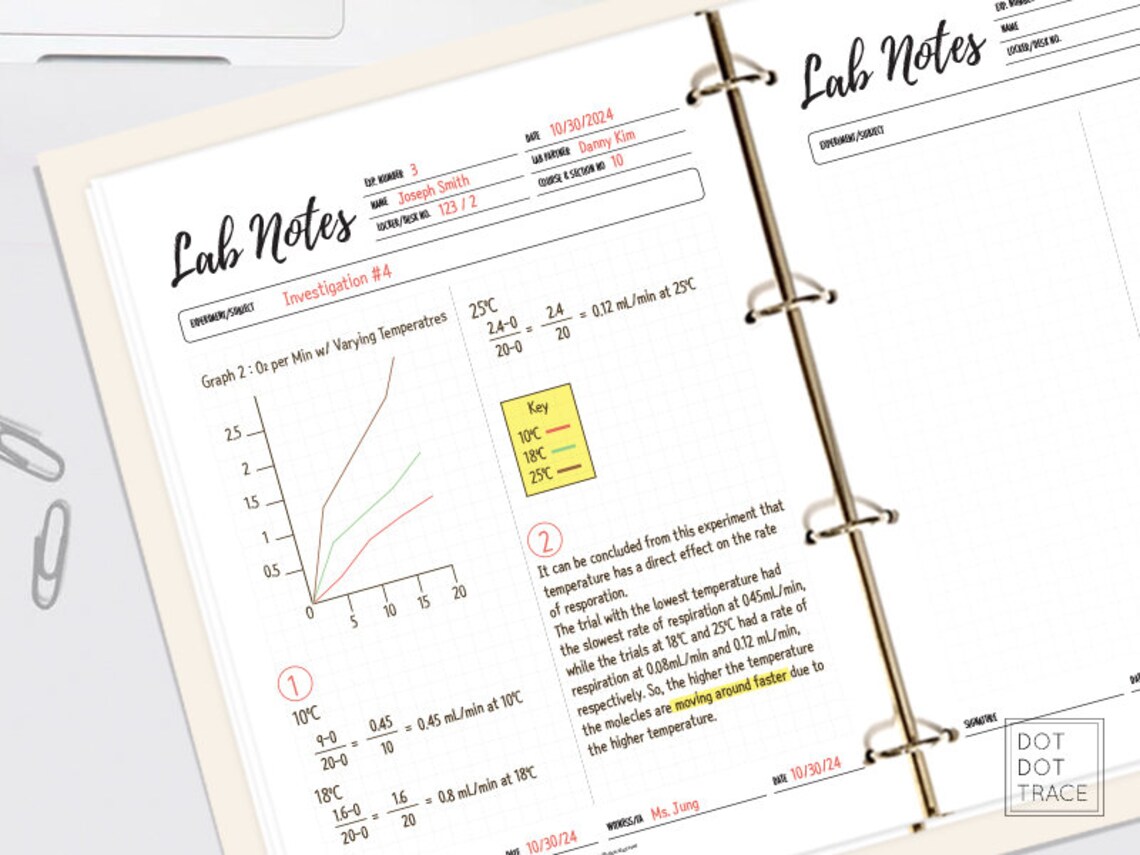 Lab Notes
EXP. NUMBER 3
NAME Joseph Smith
LOCKER/DESK NO. 123 / 2
DATE 10/30/2024
LAB PARTNER Danny Kim
COURSE & SECTION NO 10
EXPERIMENT/SUBJECT Investigation #4
Graph 2 : O₂ per Min w/ Varying Temperatres
2.5
2
1.5
1
0.5
0
5
10
15
20
1
10°C
9-0
20-0
=
0.45
10
= 0.45 mL/min at 10°C
18°C
1.6-0
20-0
=
1.6
20
= 0.8 mL/min at 18°C
DATE 10/30/24
25°C
2.4-0
20-0
=
2.4
20
= 0.12 mL/min at 25°C
Key
10°C
18°C
25°C
2
It can be concluded from this experiment that
temperature has a direct effect on the rate
of resporation.
The trial with the lowest temperature had
the slowest rate of respiration at 045mL/min,
while the trials at 18°C and 25°C had a rate of
respiration at 0.08mL/min and 0.12 mL/min,
respectively. So, the higher the temperature
the molecles are moving around faster due to
the higher temperature.
WITNESS/TA Ms. Jung
DATE 10/30/24
Lab Notes
EXP. NUMBER
NAME
LOCKER/DESK NO.
EXPERIMENT/SUBJECT
SIGNATURE
DOT
DOT
TRACE